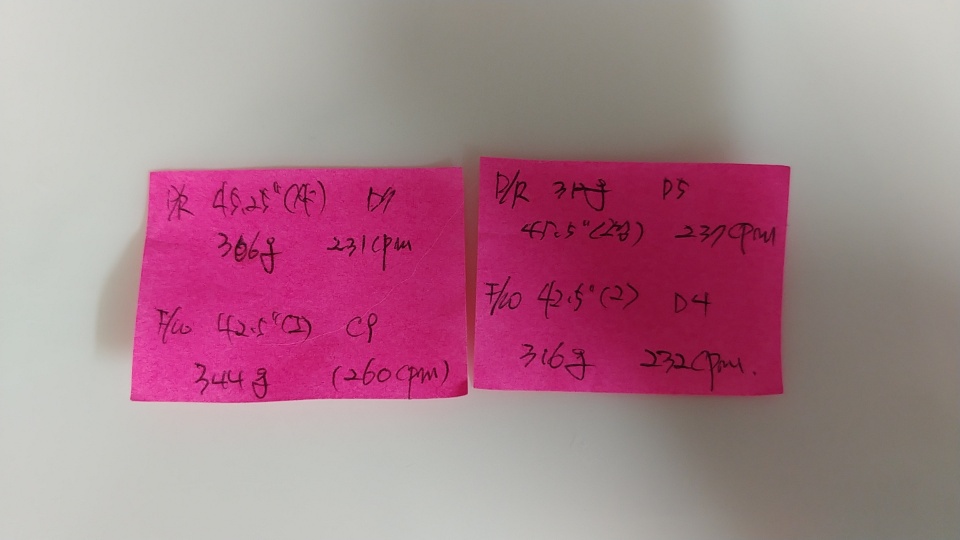 D/R 45.25"() D7
306g 231cpm
F/W 42.5"(2) C9
344g (260cpm)
D/R g D5
45.5"() 237cpm
F/W 42.5"(2) D4
316g 232cpm.